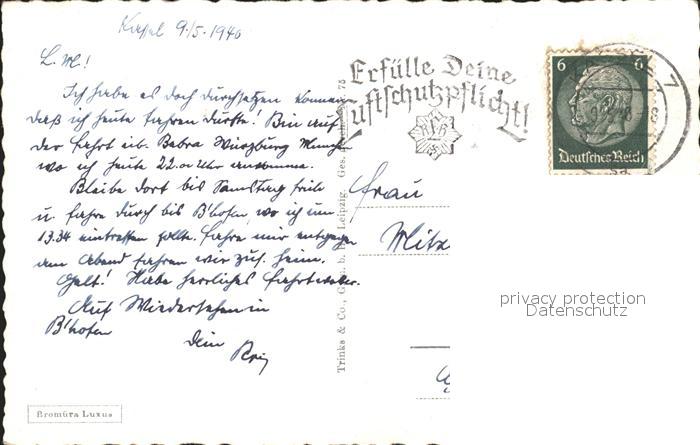 Kassel 9./5. 1940
L. M.!
Ich habe es doch durchsetzen können
daß ich heute fahren durfte! Bin auf
der Fahrt üb. Bebra Würzburg
wo ich heute 22.00 Uhr ankomme.
Bleibe dort bis Samstag früh
u. fahre durch bis B'hofen, wo ich um
13.34 eintreffen sollte. Fahre mir entgegen
am Abend fahren wir zus. heim.
Gelt! Habe herrliches Fahrtwetter.
Auf Wiedersehen in
B'hofen
Dein
Bromüra Luxus
Trinks & Co., G.m.b.H., Leipzig. Ges. 75
Erfülle Deine
Luftschutzpflicht!
RLB
6 6
Deutsches Reich
Frau
Mitz
privacy protection
Datenschutz